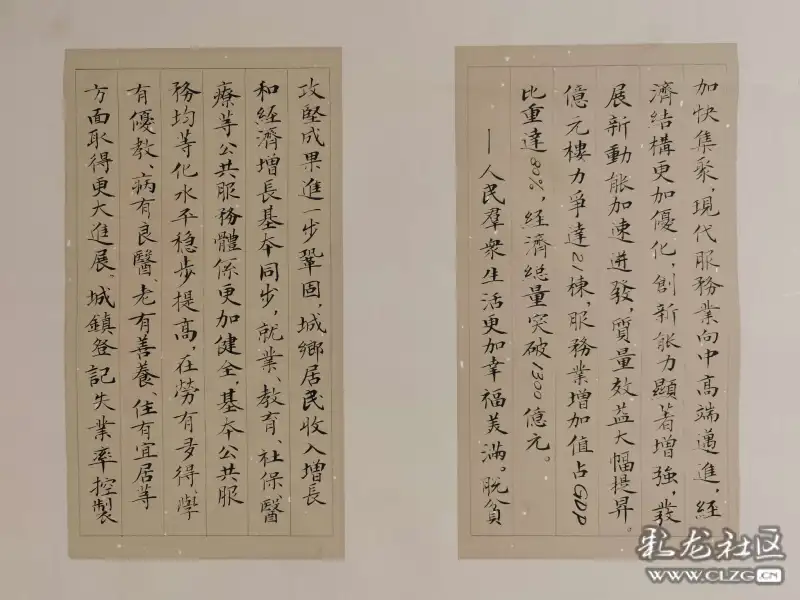 加快集聚，現代服務業向中高端邁進，經
濟結構更加優化，創新能力顯著增強，發
展新動能加速迸發，質量效益大幅提昇。
億元樓力爭達21棟，服務業增加值占GDP
比重達80%，經濟總量突破1300億元。
—人民羣衆生活更加幸福美滿。脱貧
攻堅成果進一步鞏固，城鄉居民收入增長
和經濟增長基本同步，就業、教育、社保醫
療等公共服務體係更加健全，基本公共服
務均等化水平穩步提高，在勞有多得，學
有優教、病有良醫、老有善養、住有宜居等
方面取得更大進展、城鎮登記失業率控製
彩龙社区
WWW.CLZG.CN